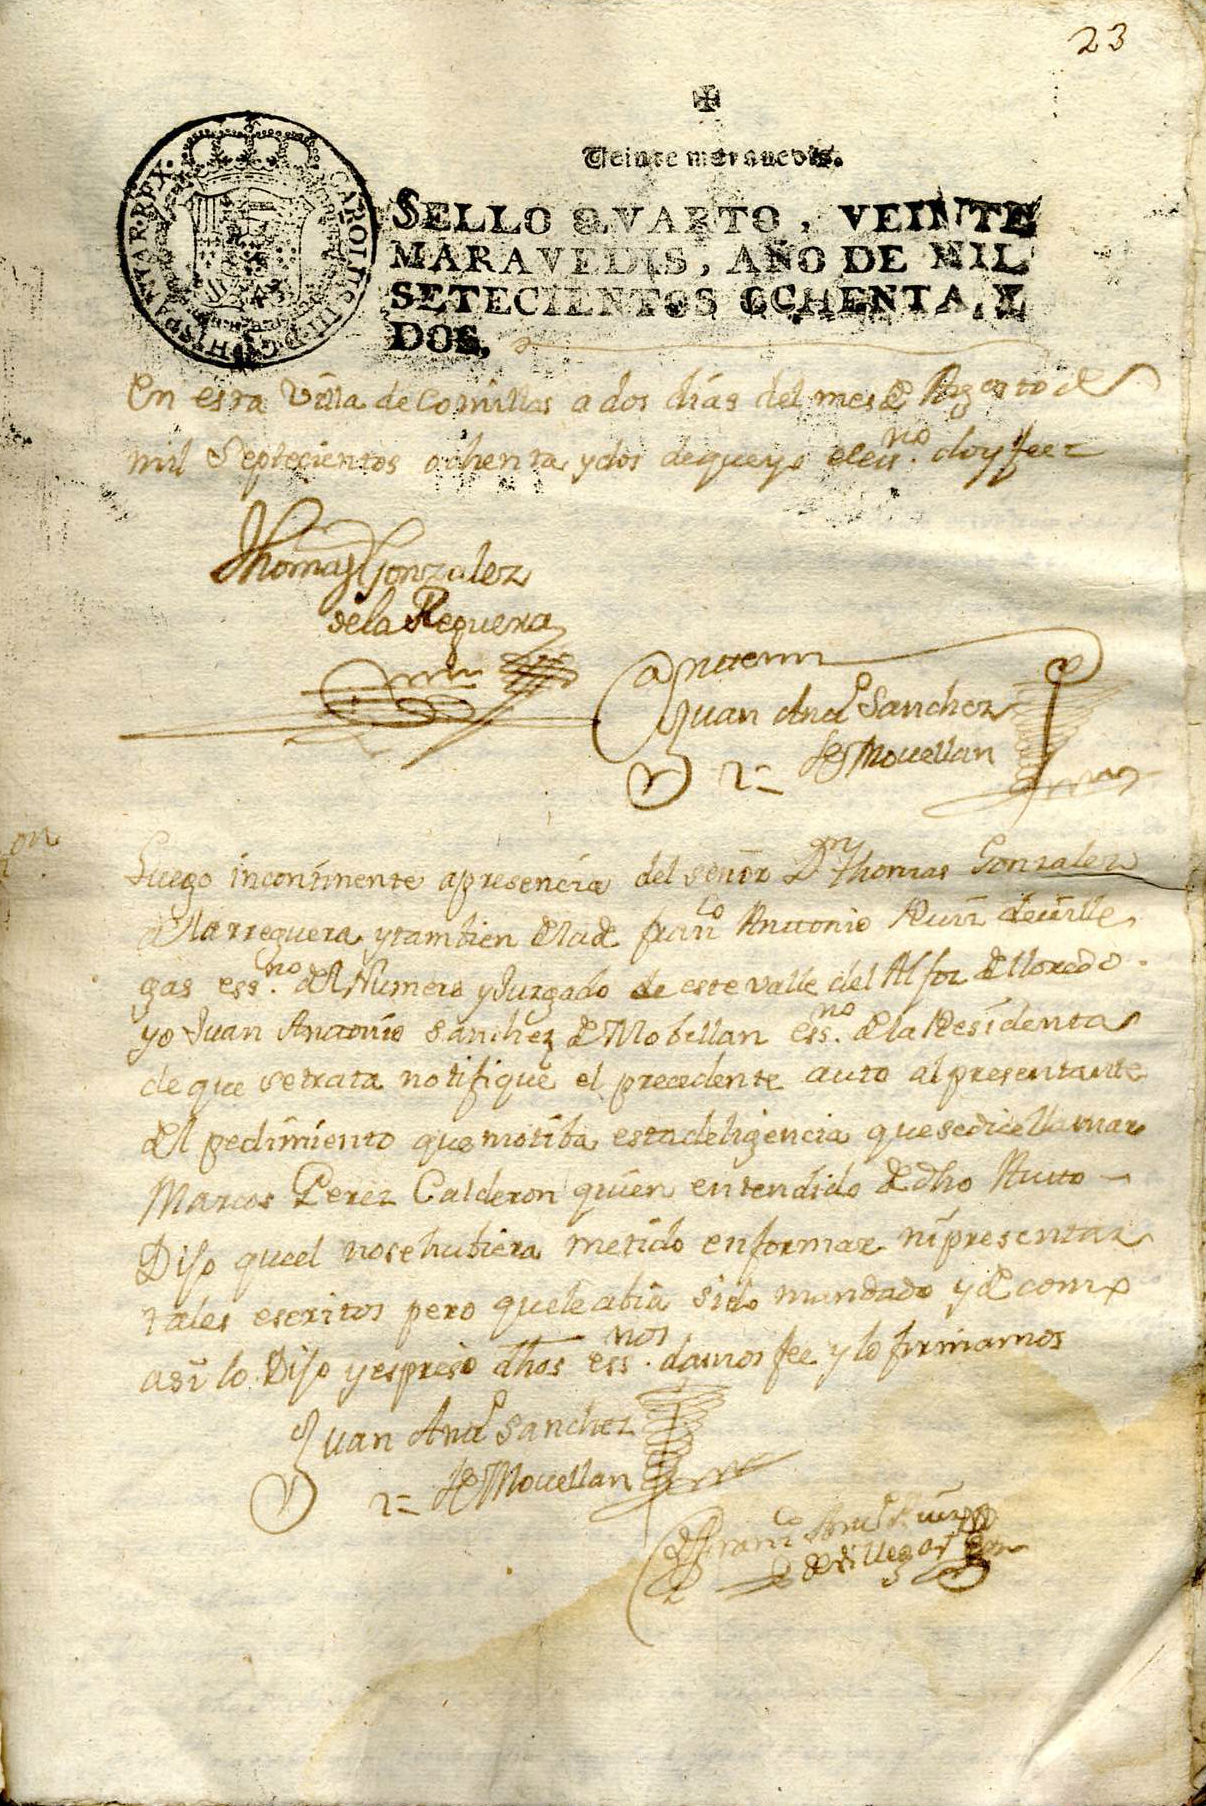 23
Veinte maravedis.
SELLO QVARTO, VEINTE
MARAVEDIS, AÑO DE MIL
SETECIENTOS OCHENTA, Y
DOS,
CAROLUS III D G HISPANIAR REX
En esta Villa de Comillas a dos dias del mes de Agosto de
mil Septecientos ochenta y dos de que yo el ess.no doy fee =
Thomas Gonzalez
de la Reguera
Antemi
Juan Anto Sanchez
de Movellan
on
Luego incontinente apresencia del señor Dn Thomas Gonzalez
de la rreguera y tambien de la de franco Antonio Ruiz de ville
gas ess.no del Numero y Juzgado de este valle del Alfoz de lloredo
yo Juan Antonio Sanchez de Mobellan ess.no de la Residenta
de que se trata notifique el precedente auto al presentante
del pedimiento que motiba esta deligencia que se dice llamar
Marcos Perez Calderon quien entendido de dho Auto
Dijo que el no se hubiera metido en formar ni presentar
tales escritos pero que le abia sido mandado y de como
asi lo Dijo y espreso dhos ess.nos damos fee y lo firmamos
Juan Anto Sanchez
de Movellan
Franco Anto Ruiz
de Villegas